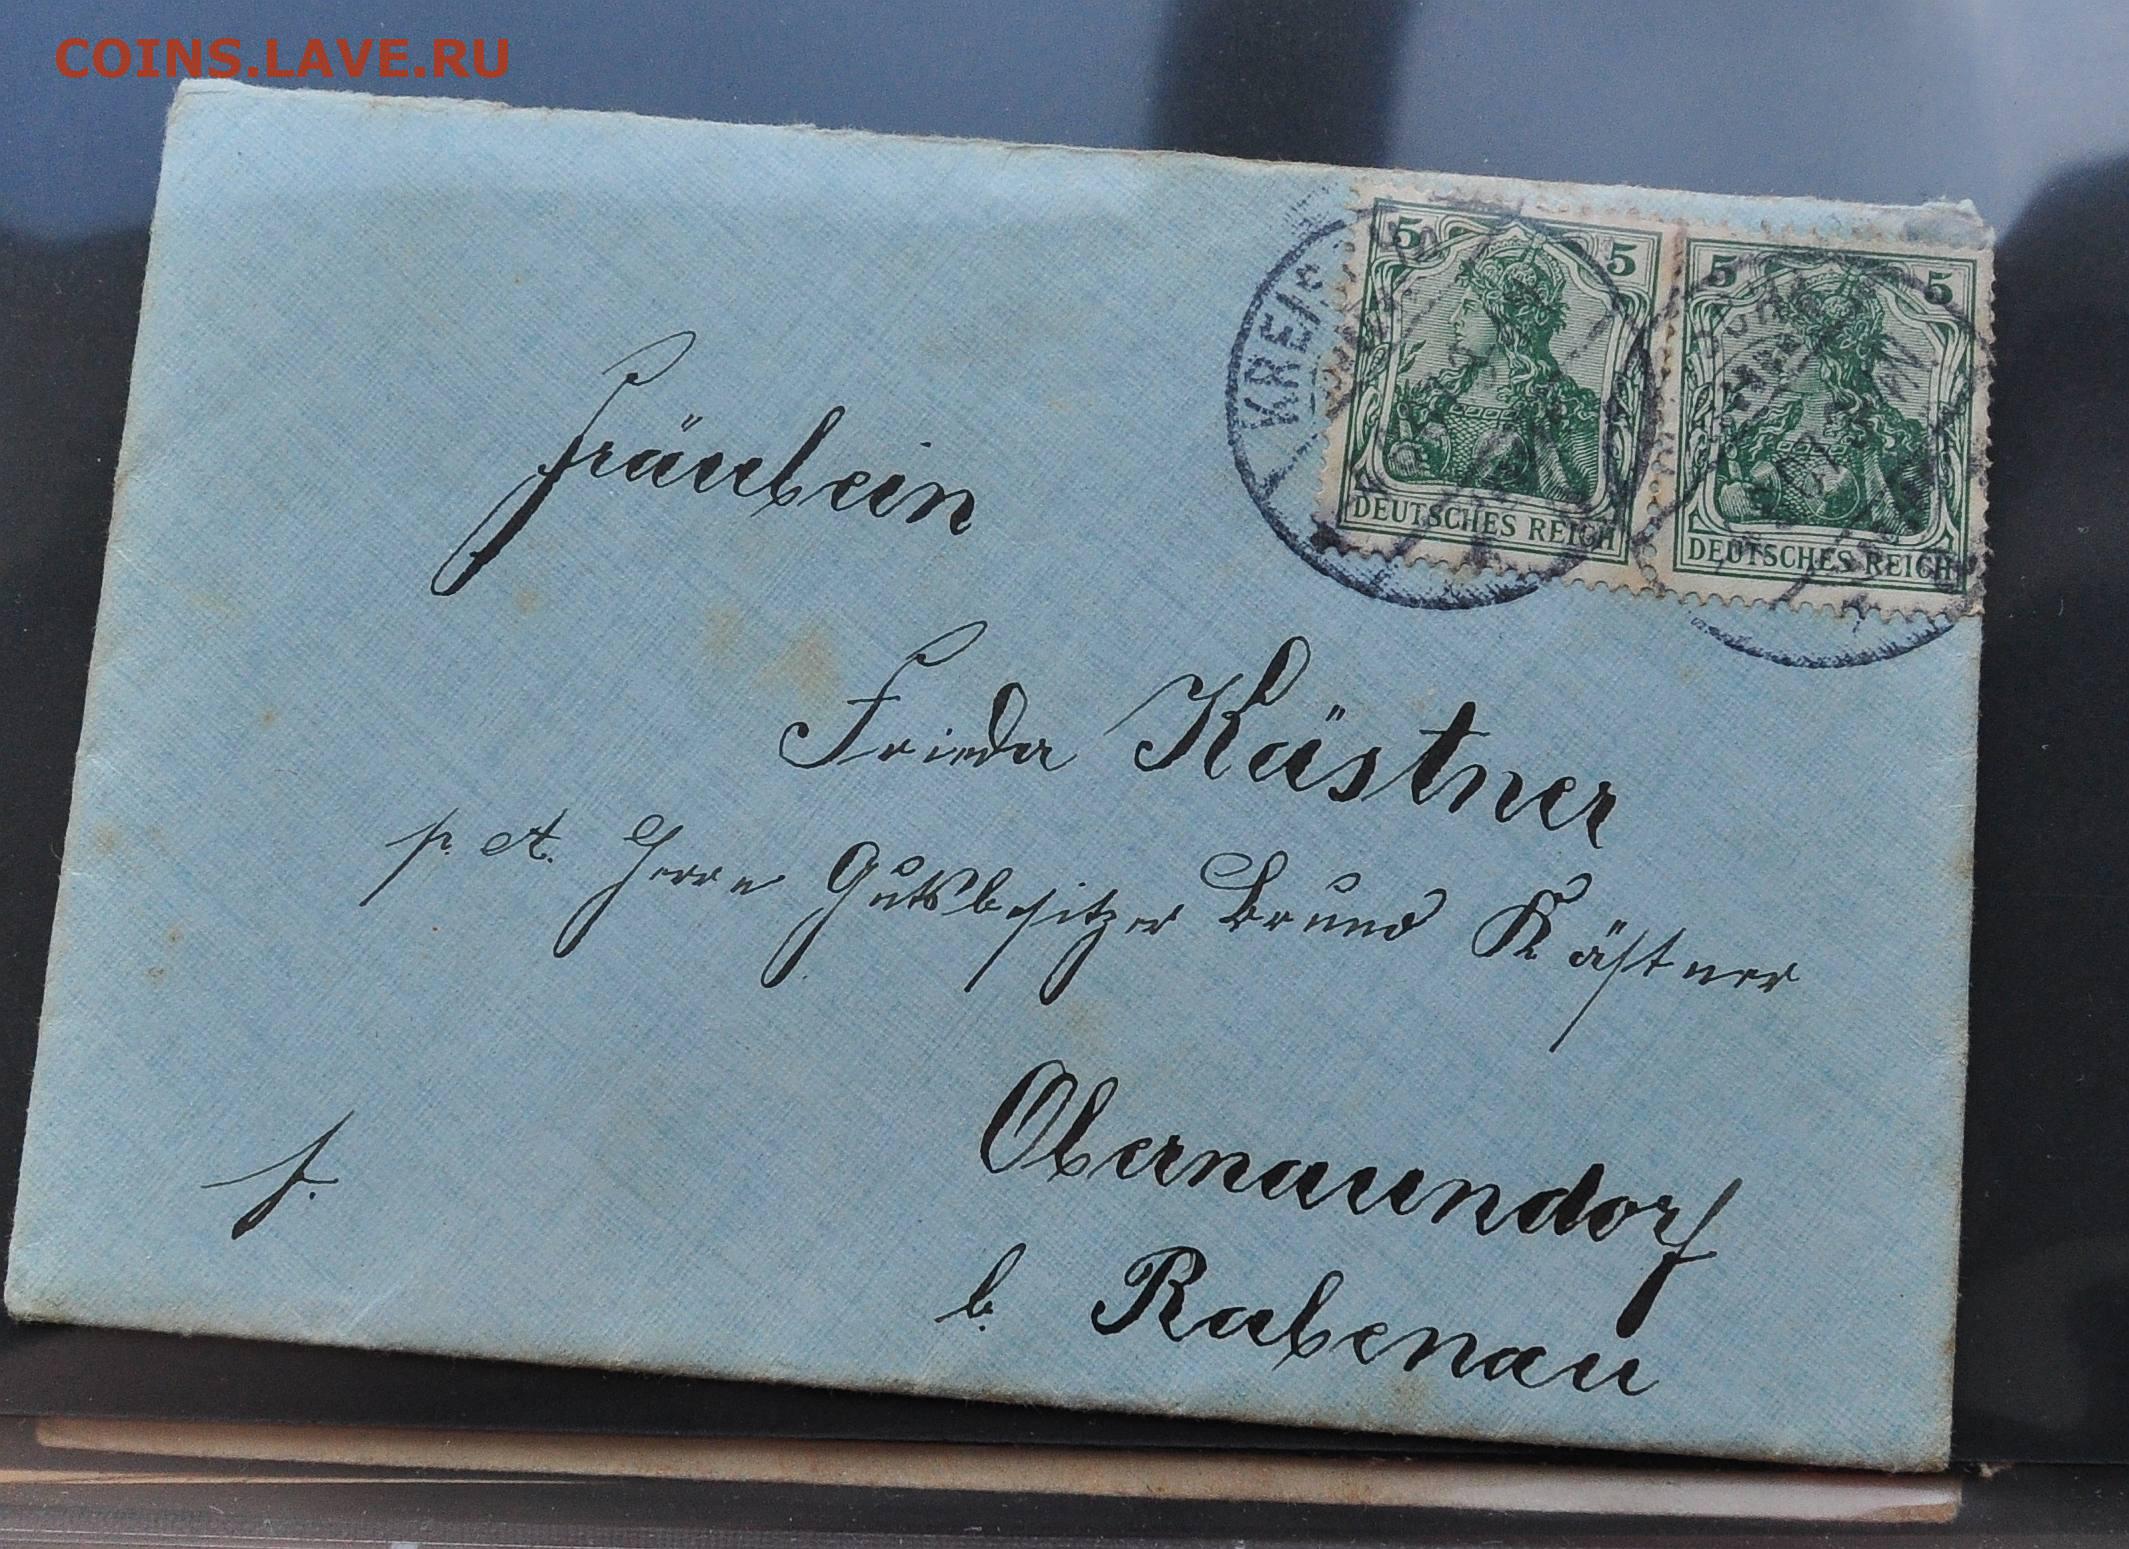 COINS.LAVE.RU
5 5 5 5
KREIS
DEUTSCHES REICH DEUTSCHES REICH
Fräulein
Frieda Kästner
p. A. Herrn Gutsbesitzer Bruno Kästner
Obernaundorf
b. Rabenau